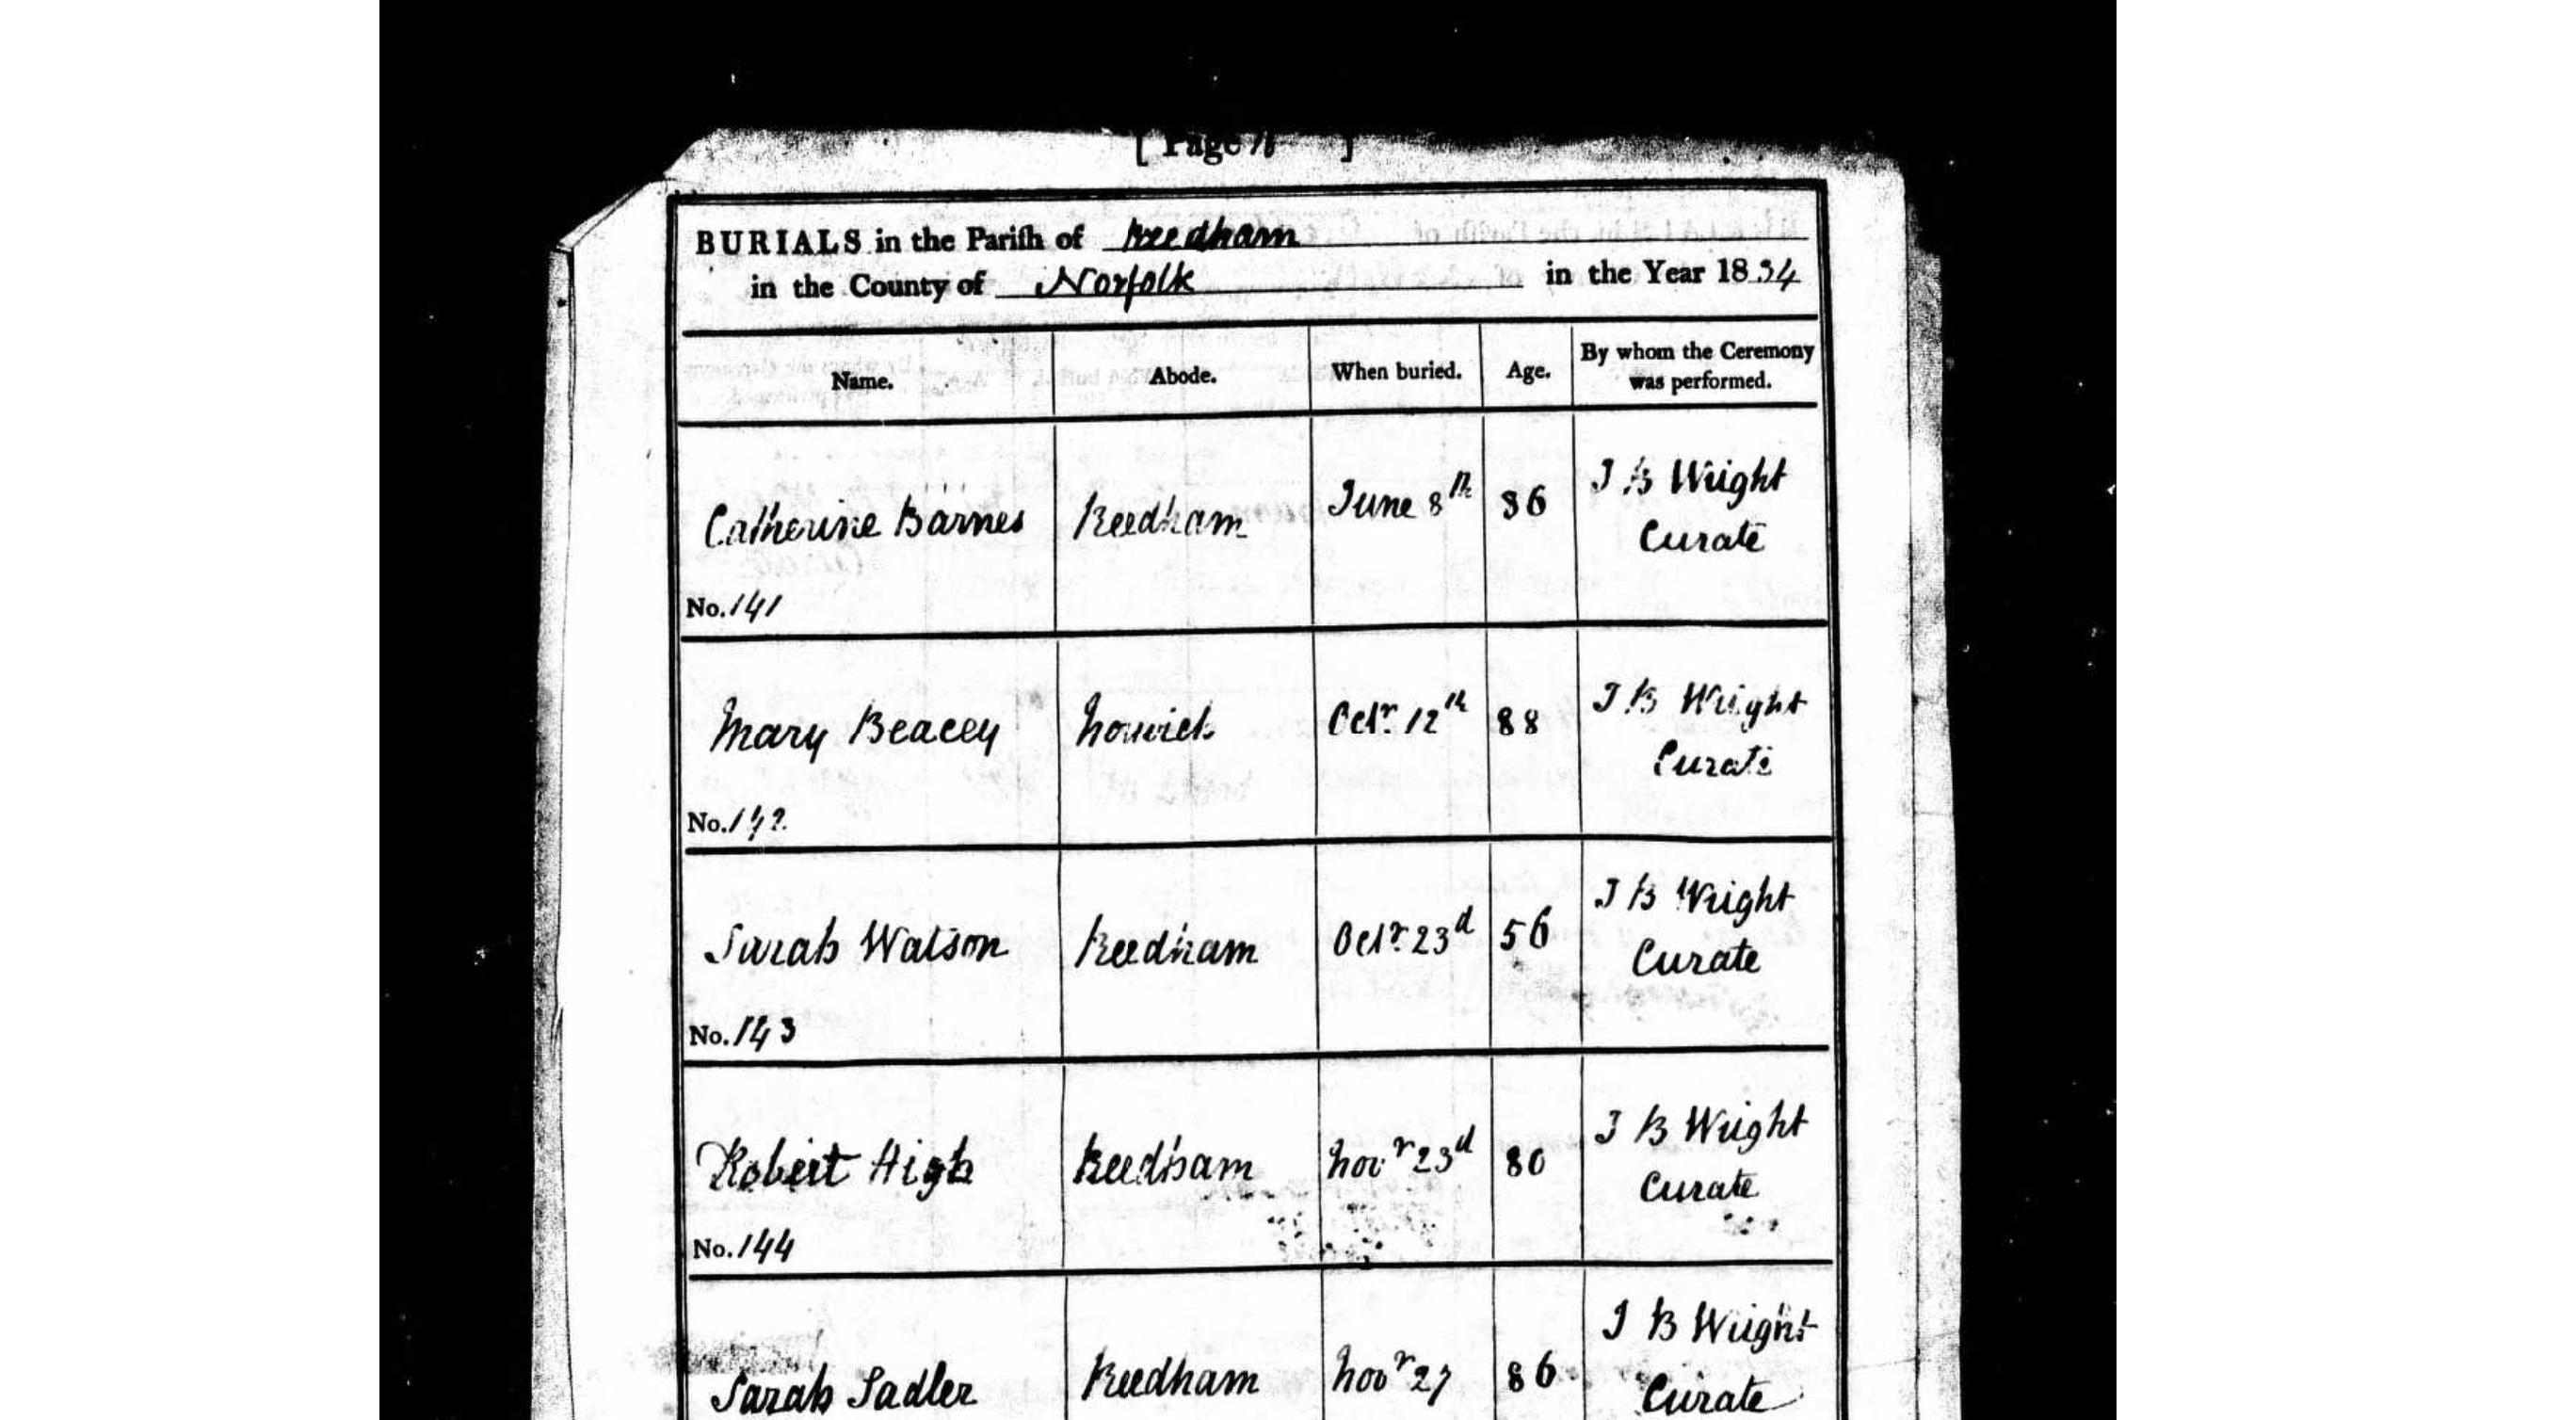 [ Page ]
BURIALS in the Pariſh of Reedham
in the County of Norfolk in the Year 1834
Name. Abode. When buried. Age. By whom the Ceremony was performed.
Catherine Barnes Reedham June 8th 36 J B Wright
Curate
No. 141
Mary Beacey Norwich Octr. 12th 88 J B Wright
Curate
No. 142
Sarah Watson Reedham Octr. 23d 56 J B Wright
Curate
No. 143
Robert High Reedham Novr 23d 80 J B Wright
Curate
No. 144
Sarah Sadler Reedham Novr 27 86 J B Wright
Curate